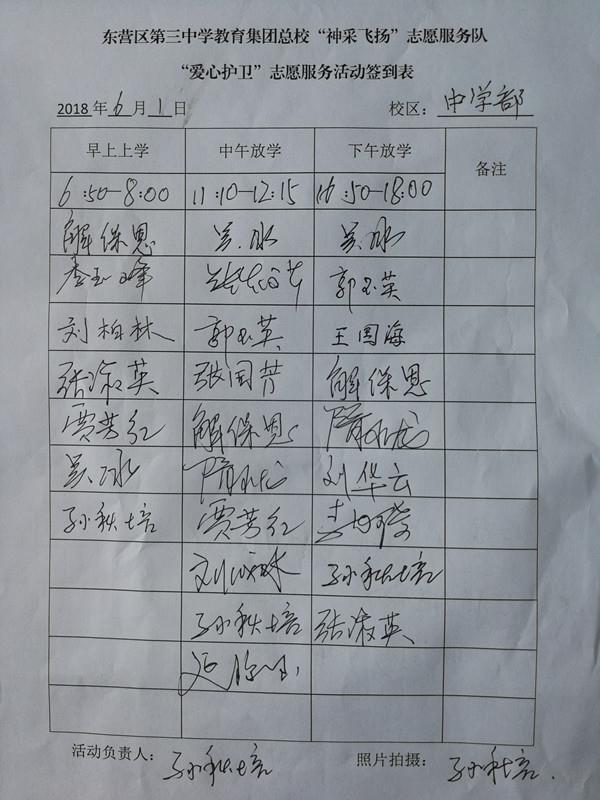 东营区第三中学教育集团总校“神采飞扬”志愿服务队
“爱心护卫”志愿服务活动签到表
2018年6月1日 校区：中学部
早上上学 中午放学 下午放学 备注
6:50-8:00 11:10-12:15 16:50-18:00
解保恩 吴冰 吴冰
李玉峰 郭玉英
刘柏林 郭玉英 王国海
张淑英 张国芳 解保恩
贾芳红 解保恩
吴冰 刘华云
孙秋培 贾芳红
孙秋培
孙秋培 张淑英
活动负责人：孙秋培 照片拍摄：孙秋培